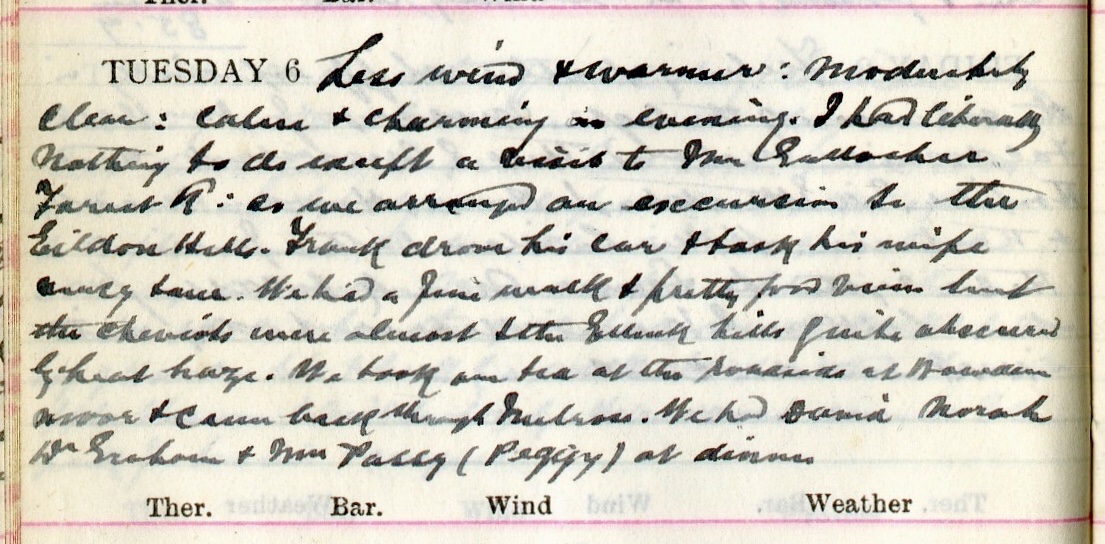 Ther. Bar. Wind
TUESDAY 6 Less wind & warmer: Moderately
clear: calm & charming in evening. I had literally
nothing to do except a visit to Mrs Gallacher
Forest R: so we arranged an excursion to the
Eildon Hills. Frank drove his car & took his wife
& . We had a fine walk & pretty good view but
the Cheviots were almost & the Ettrick hills quite obscured
by heat haze. We took our tea at the roadside at Bowden
moor & came back through Melrose. We had David Norah
Dr Graham & Mrs (Peggy) at dinner
Ther. Bar. Wind Weather